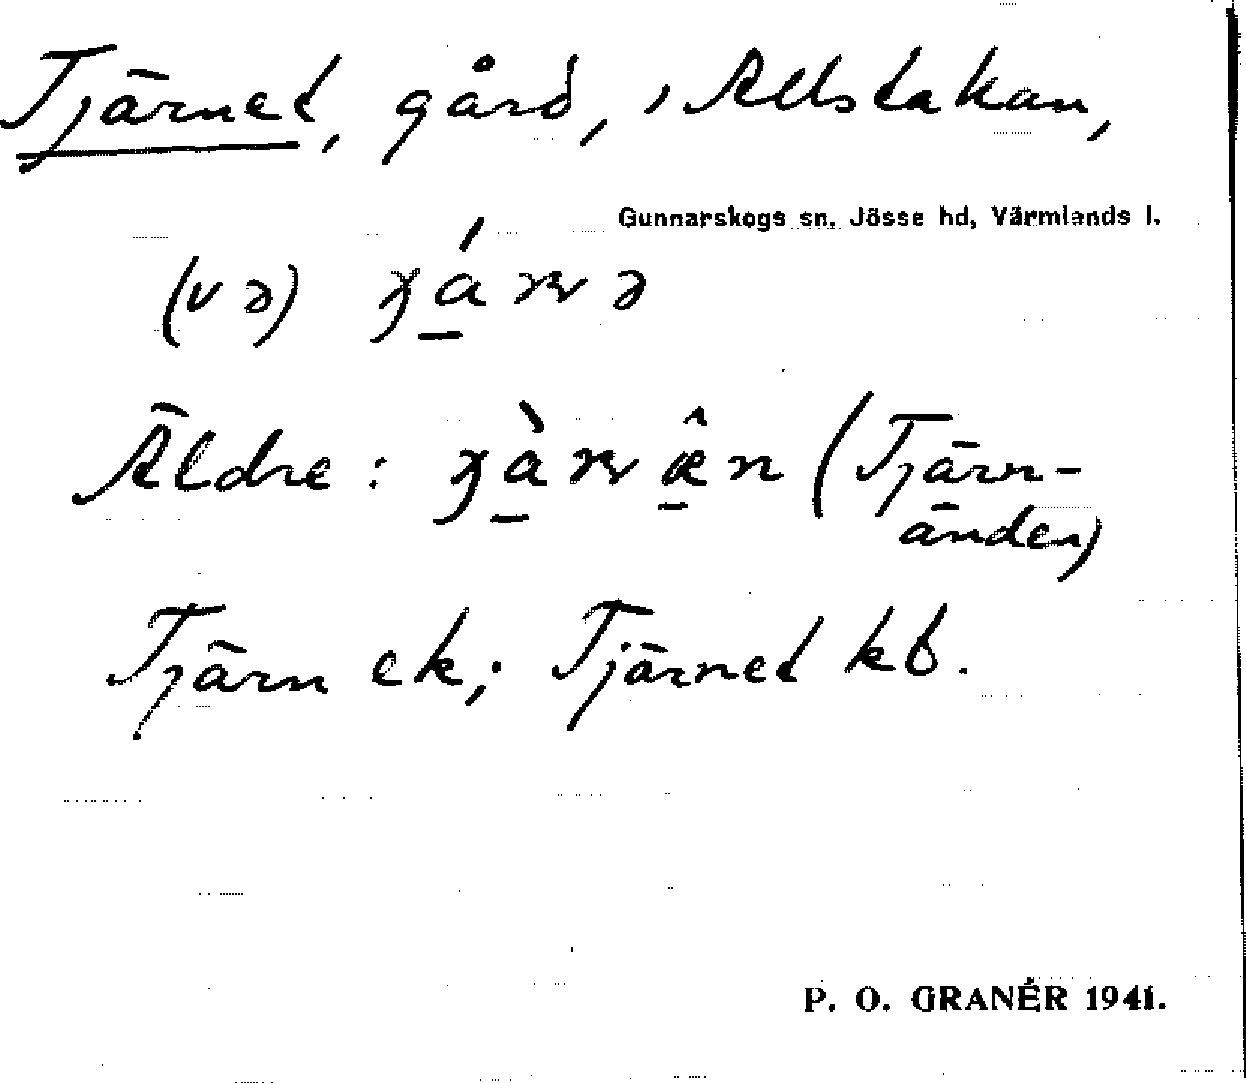 Tjärnet, gård, i Allstakan,
Gunnarskogs sn. Jösse hd, Värmlands l.
(v ə)
Äldre: (Tjärn-
änden)
Tjärn ek; Tjärnet kb.
P. O. GRANÉR 1941.